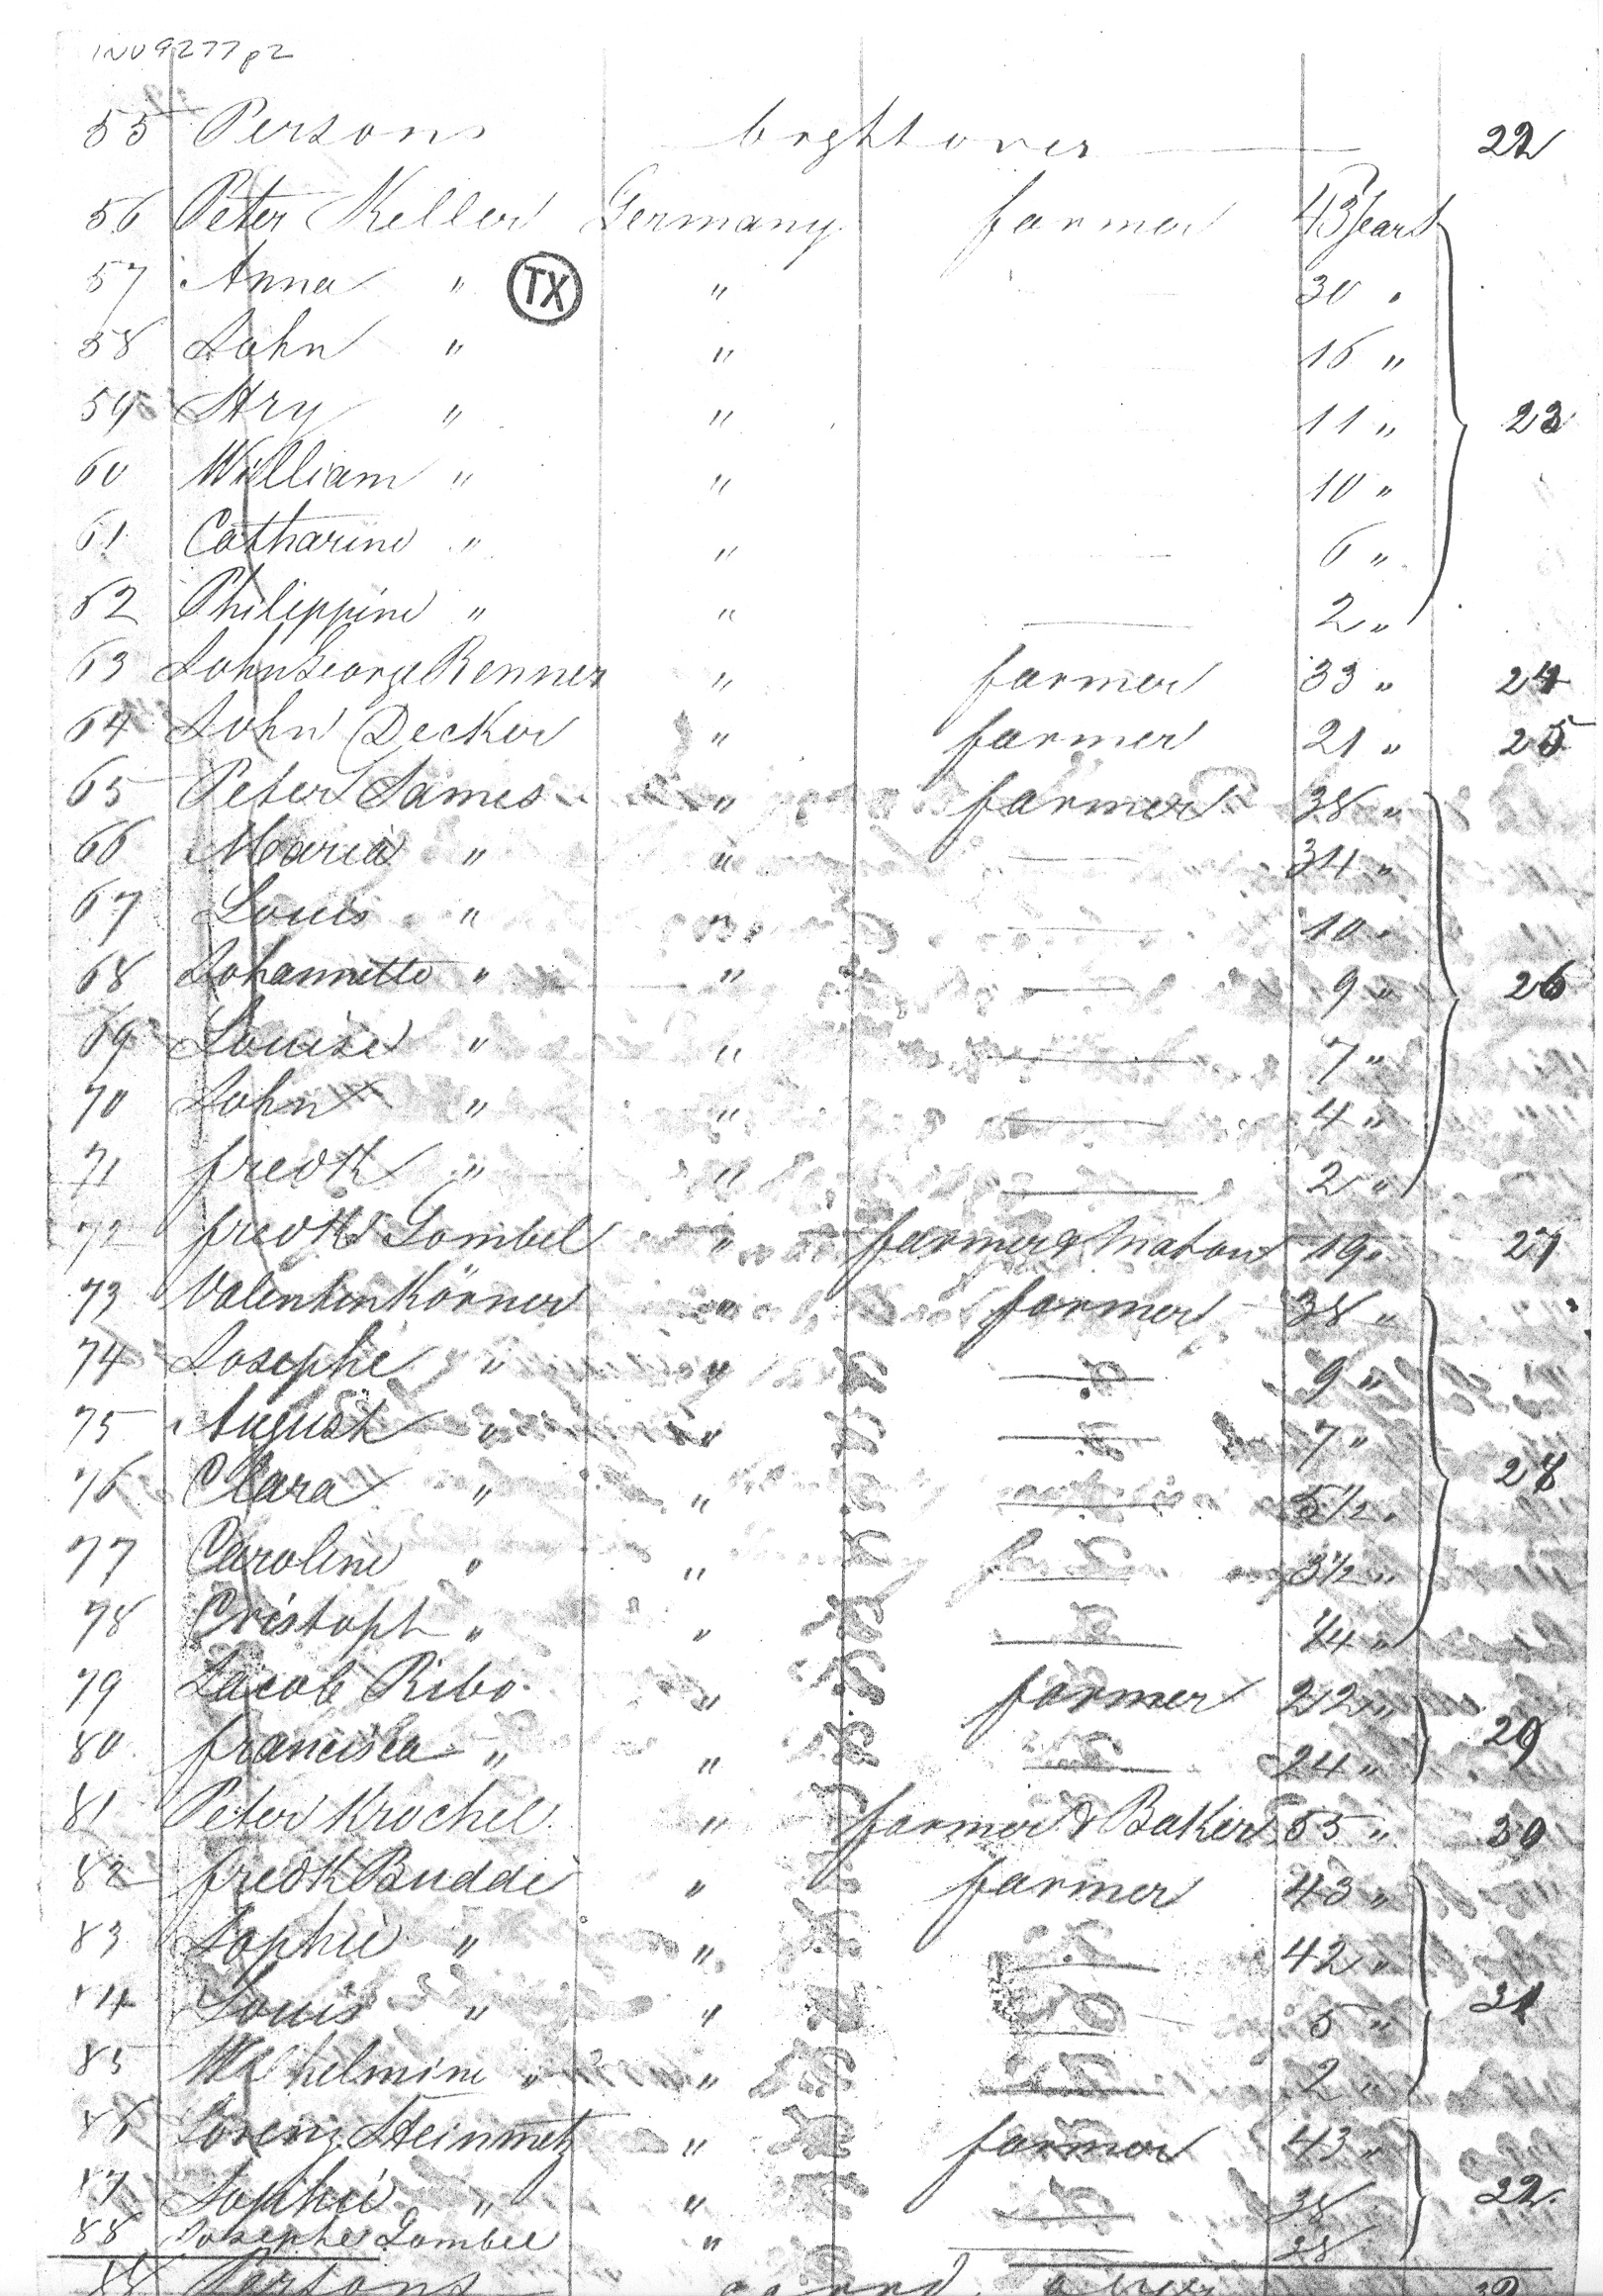 INV 9277 p2
55 Persons brght over 22
56 Peter Keller Germany farmer 43 Years
57 Anna " TX " 30 "
58 John " " 16 "
59 Hry " " 11 " 23
60 William " " 10 "
61 Catharine " " 6 "
62 Philippine " " 2 "
63 John George Renner " farmer 33 " 24
64 John Decker " farmer 21 " 25
65 Peter James " farmer 38 "
66 Maria " " 34 "
67 Louis " " 10 "
68 Johannette " " 9 " 26
69 Louise " " 7 "
70 John " " 4 "
71 fredk " " 2 "
72 fredk Gombel " farmer & Mason 19 " 27
73 Valentin Körner " farmer 38 "
74 Josephe " " 9 "
75 August " " 7 "
76 Clara " " 5 1/2 " 28
77 Caroline " " 3 1/2 "
78 Cristoph " " 1/4 "
79 Jacob Ribo " farmer 22 "
80 francisca " " 24 " 29
81 Peter Krochel " farmer & Baker 55 " 30
82 fredk Budde " farmer 43 "
83 Sophie " " 42 "
84 Louis " " 5 " 31
85 Wilhelmine " " 2 "
86 Lorenz Steinmetz " farmer 43 "
87 Sophie " " 38 32
88 Josephe Gombel " 28
88 Persons carrd over 32